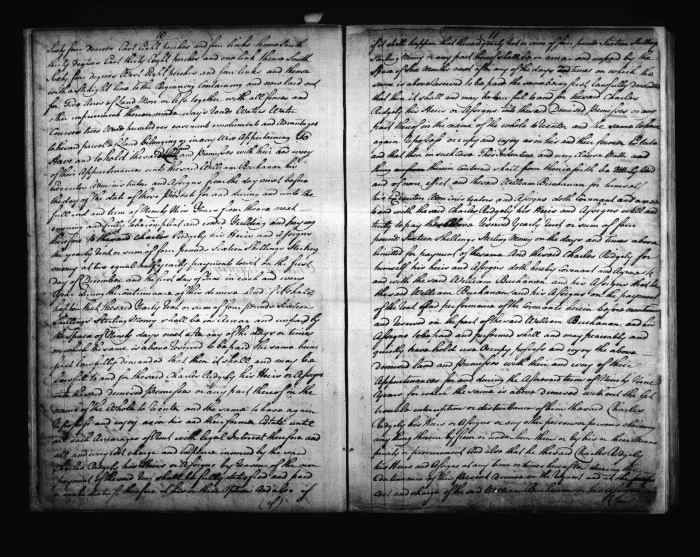 10
Sixty four degrees East Eight perches and four links thence South
thirty degrees East thirty Eight perches and one link thence South
Sixty four degrees West Eight perches and four links and thence
with a Straight line to the Beginning Containing and now laid out
for Two Acres of Land More or less together with all fences and
other improvements thereon made ways Roads Waters Water
Courses Trees Woods priviledges easements emoluments and advantages
to the said parcels of Land belonging or in any Wise Appertaining To
Have and to hold the said Land and premisses with their and every
of their Appurtenances unto the said William Buchanan his
Executors Administrators and Assigns from the day next before
the day of the date of these Presents for and during and unto the
full end and term of Ninety Nine Years from thence next
ensuing and fully to be compleat and ended Yielding and paying
therefore to the said Charles Ridgely his Heirs and Assigns
the yearly Rent or sum of four pounds Sixteen Shillings Sterling
money at two equal half Yearly payments to wit on the first
day of December and the first day of June in each and every
Year during the continuance of this demise And if it shall
happen that the said Yearly Rent or sum of four pounds Sixteen
Shillings Sterling Money shall be in Arrear and unpaid by
the space of Thirty days next after any of the days or times
on which the same is above Reserved to be paid the same being
first lawfully demanded that then it shall and may be
lawfull to and for the said Charles Ridgely his Heirs or Assigns
into the said demised Premisses or any part thereof in the
name of the Whole to Reenter and the same to have again
Repossess and enjoy as in his and their former Estate until
all such Arrearages of Rent with legal Interest therefore and
all and every Cost charge and Expence incurred by the said
Charles Ridgely his Heirs or Assigns by Reason of the non
payment of the said Rent shall be fully satisfied and paid
or make distress therefore at his or their Option And also if
11
if it shall happen that the said yearly Rent or sum of four pounds Sixteen Shillings
Sterling Money or any part thereof shall be in arrear and unpaid by the
Space of Six Months next after any of the days and times on which the
same is above Reserved to be paid the same being first lawfully demanded
that then it shall and may be lawfull to and for the said Charles
Ridgely his Heirs or Assigns into the said Demised Premisses or any
part thereof in the name of the whole to Reenter and the same to have
again Repossess occupy and enjoy as in his and their former Estate
and that then in such Case This Indenture and every Clause Matter and
thing therein contained shall from thenceforth be Utterly Void
and of none effect and the said William Buchanan for himself
his Executors Administrators and Assigns doth Covenant and agree
to and with the said Charles Ridgely his Heirs and Assigns well and
truly to pay the above Reserved Yearly Rent or sum of four
pounds Sixteen Shillings Sterling Money on the days and times above
limitted for payment of the same And the said Charles Ridgely for
himself his heirs and Assigns doth hereby covenant and Agree to
and with the said William Buchanan and his Assigns that he
the said William Buchanan and his Assigns on the payment
of the Rent And performance of the Covenants herein before mentioned
and Reserved on the part of the said William Buchanan and his
Assigns to be paid and performed shall and may peaceably and
quietly have hold use Occupy possess and enjoy the above
demised land and premisses with their and every of their
Appurtenances for and during the Aforesaid term of Ninety Nine
Years for which the same is above demised without the let
trouble interruption or disturbance of him the said Charles
Ridgely his Heirs or Assigns or any other person or persons claiming
any thing therein by from or under him them or by his or their Means
privity or procurement And also that he the said Charles Ridgely
his Heirs and Assigns at any time or times hereafter during the
Continuance of this Present Demise on the request and at the
cost and charge of the said William Buchanan or his Assigns